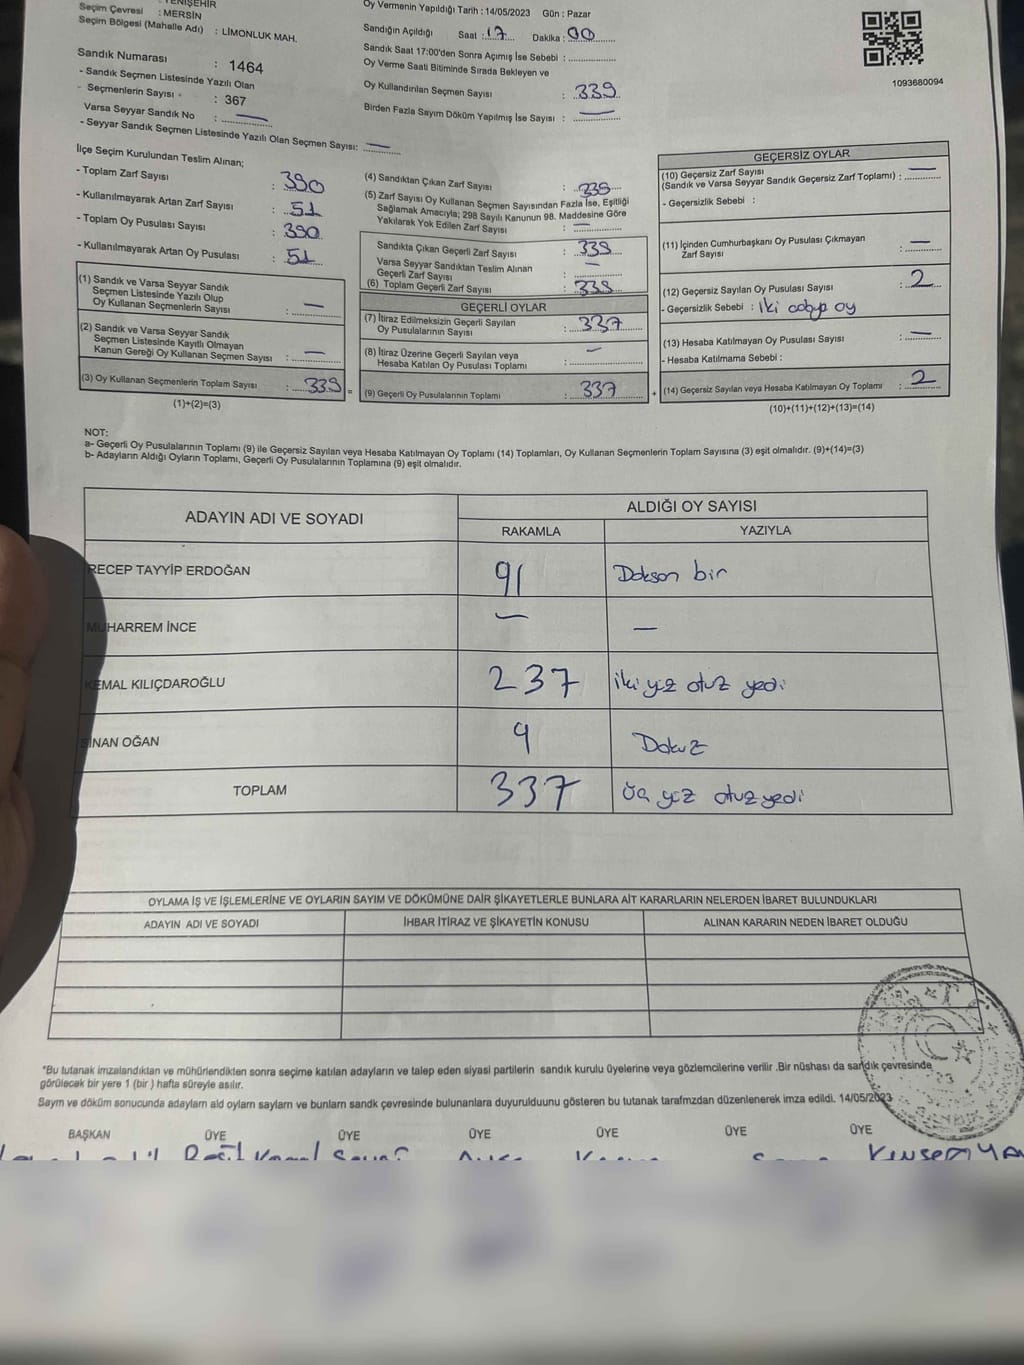 YENİŞEHİR
Seçim Çevresi : MERSİN
Seçim Bölgesi (Mahalle Adı) : LİMONLUK MAH.
Sandık Numarası : 1464
- Sandık Seçmen Listesinde Yazılı Olan
- Seçmenlerin Sayısı - : 367
Varsa Seyyar Sandık No : —
- Seyyar Sandık Seçmen Listesinde Yazılı Olan Seçmen Sayısı: —
Oy Vermenin Yapıldığı Tarih : 14/05/2023 Gün : Pazar
Sandığın Açıldığı Saat : 17 Dakika : 00
Sandık Saat 17:00'den Sonra Açımış İse Sebebi :
Oy Verme Saati Bitiminde Sırada Bekleyen ve
Oy Kullandırılan Seçmen Sayısı : 339
Birden Fazla Sayım Döküm Yapılmış İse Sayısı : —
1093680094
İlçe Seçim Kurulundan Teslim Alınan;
- Toplam Zarf Sayısı : 390
- Kullanılmayarak Artan Zarf Sayısı : 51
- Toplam Oy Pusulası Sayısı : 390
- Kullanılmayarak Artan Oy Pusulası : 51
(1) Sandık ve Varsa Seyyar Sandık
Seçmen Listesinde Yazılı Olup
Oy Kullanan Seçmenlerin Sayısı : —
(2) Sandık ve Varsa Seyyar Sandık
Seçmen Listesinde Kayıtlı Olmayan
Kanun Gereği Oy Kullanan Seçmen Sayısı : —
(3) Oy Kullanan Seçmenlerin Toplam Sayısı : 339 =
(1)+(2)=(3)
(4) Sandıktan Çıkan Zarf Sayısı : 339
(5) Zarf Sayısı Oy Kullanan Seçmen Sayısından Fazla İse, Eşitliği
Sağlamak Amacıyla; 298 Sayılı Kanunun 98. Maddesine Göre
Yakılarak Yok Edilen Zarf Sayısı : —
Sandıkta Çıkan Geçerli Zarf Sayısı : 339
Varsa Seyyar Sandıktan Teslim Alınan
Geçerli Zarf Sayısı : —
(6) Toplam Geçerli Zarf Sayısı : 339
GEÇERLİ OYLAR
(7) İtiraz Edilmeksizin Geçerli Sayılan
Oy Pusulalarının Sayısı : 337
(8) İtiraz Üzerine Geçerli Sayılan veya
Hesaba Katılan Oy Pusulası Toplamı : —
(9) Geçerli Oy Pusulalarının Toplamı : 337 +
GEÇERSİZ OYLAR
(10) Geçersiz Zarf Sayısı
(Sandık ve Varsa Seyyar Sandık Geçersiz Zarf Toplamı) : —
- Geçersizlik Sebebi :
(11) İçinden Cumhurbaşkanı Oy Pusulası Çıkmayan
Zarf Sayısı : —
(12) Geçersiz Sayılan Oy Pusulası Sayısı : 2
- Geçersizlik Sebebi : İki adaya oy
(13) Hesaba Katılmayan Oy Pusulası Sayısı : —
- Hesaba Katılmama Sebebi :
(14) Geçersiz Sayılan veya Hesaba Katılmayan Oy Toplamı : 2
(10)+(11)+(12)+(13)=(14)
NOT:
a- Geçerli Oy Pusulalarının Toplamı (9) ile Geçersiz Sayılan veya Hesaba Katılmayan Oy Toplamı (14) Toplamları, Oy Kullanan Seçmenlerin Toplam Sayısına (3) eşit olmalıdır. (9)+(14)=(3)
b- Adayların Aldığı Oyların Toplamı, Geçerli Oy Pusulalarının Toplamına (9) eşit olmalıdır.
ADAYIN ADI VE SOYADI ALDIĞI OY SAYISI
RAKAMLA YAZIYLA
RECEP TAYYİP ERDOĞAN 91 Doksan bir
MUHARREM İNCE — —
KEMAL KILIÇDAROĞLU 237 İki yüz otuz yedi
SİNAN OĞAN 9 Dokuz
TOPLAM 337 Üç yüz otuz yedi
OYLAMA İŞ VE İŞLEMLERİNE VE OYLARIN SAYIM VE DÖKÜMÜNE DAİR ŞİKAYETLERLE BUNLARA AİT KARARLARIN NELERDEN İBARET BULUNDUKLARI
ADAYIN ADI VE SOYADI İHBAR İTİRAZ VE ŞİKAYETİN KONUSU ALINAN KARARIN NEDEN İBARET OLDUĞU
*Bu tutanak imzalandıktan ve mühürlendikten sonra seçime katılan adayların ve talep eden siyasi partilerin sandık kurulu üyelerine veya gözlemcilerine verilir .Bir nüshası da sandık çevresinde
görülecek bir yere 1 (bir ) hafta süreyle asılır.
Saym ve döküm sonucunda adaylarn ald oylarn saylarn ve bunlarn sandk çevresinde bulunanlara duyurulduunu gösteren bu tutanak tarafmzdan düzenlenerek imza edildi. 14/05/2023
BAŞKAN ÜYE ÜYE ÜYE ÜYE ÜYE ÜYE